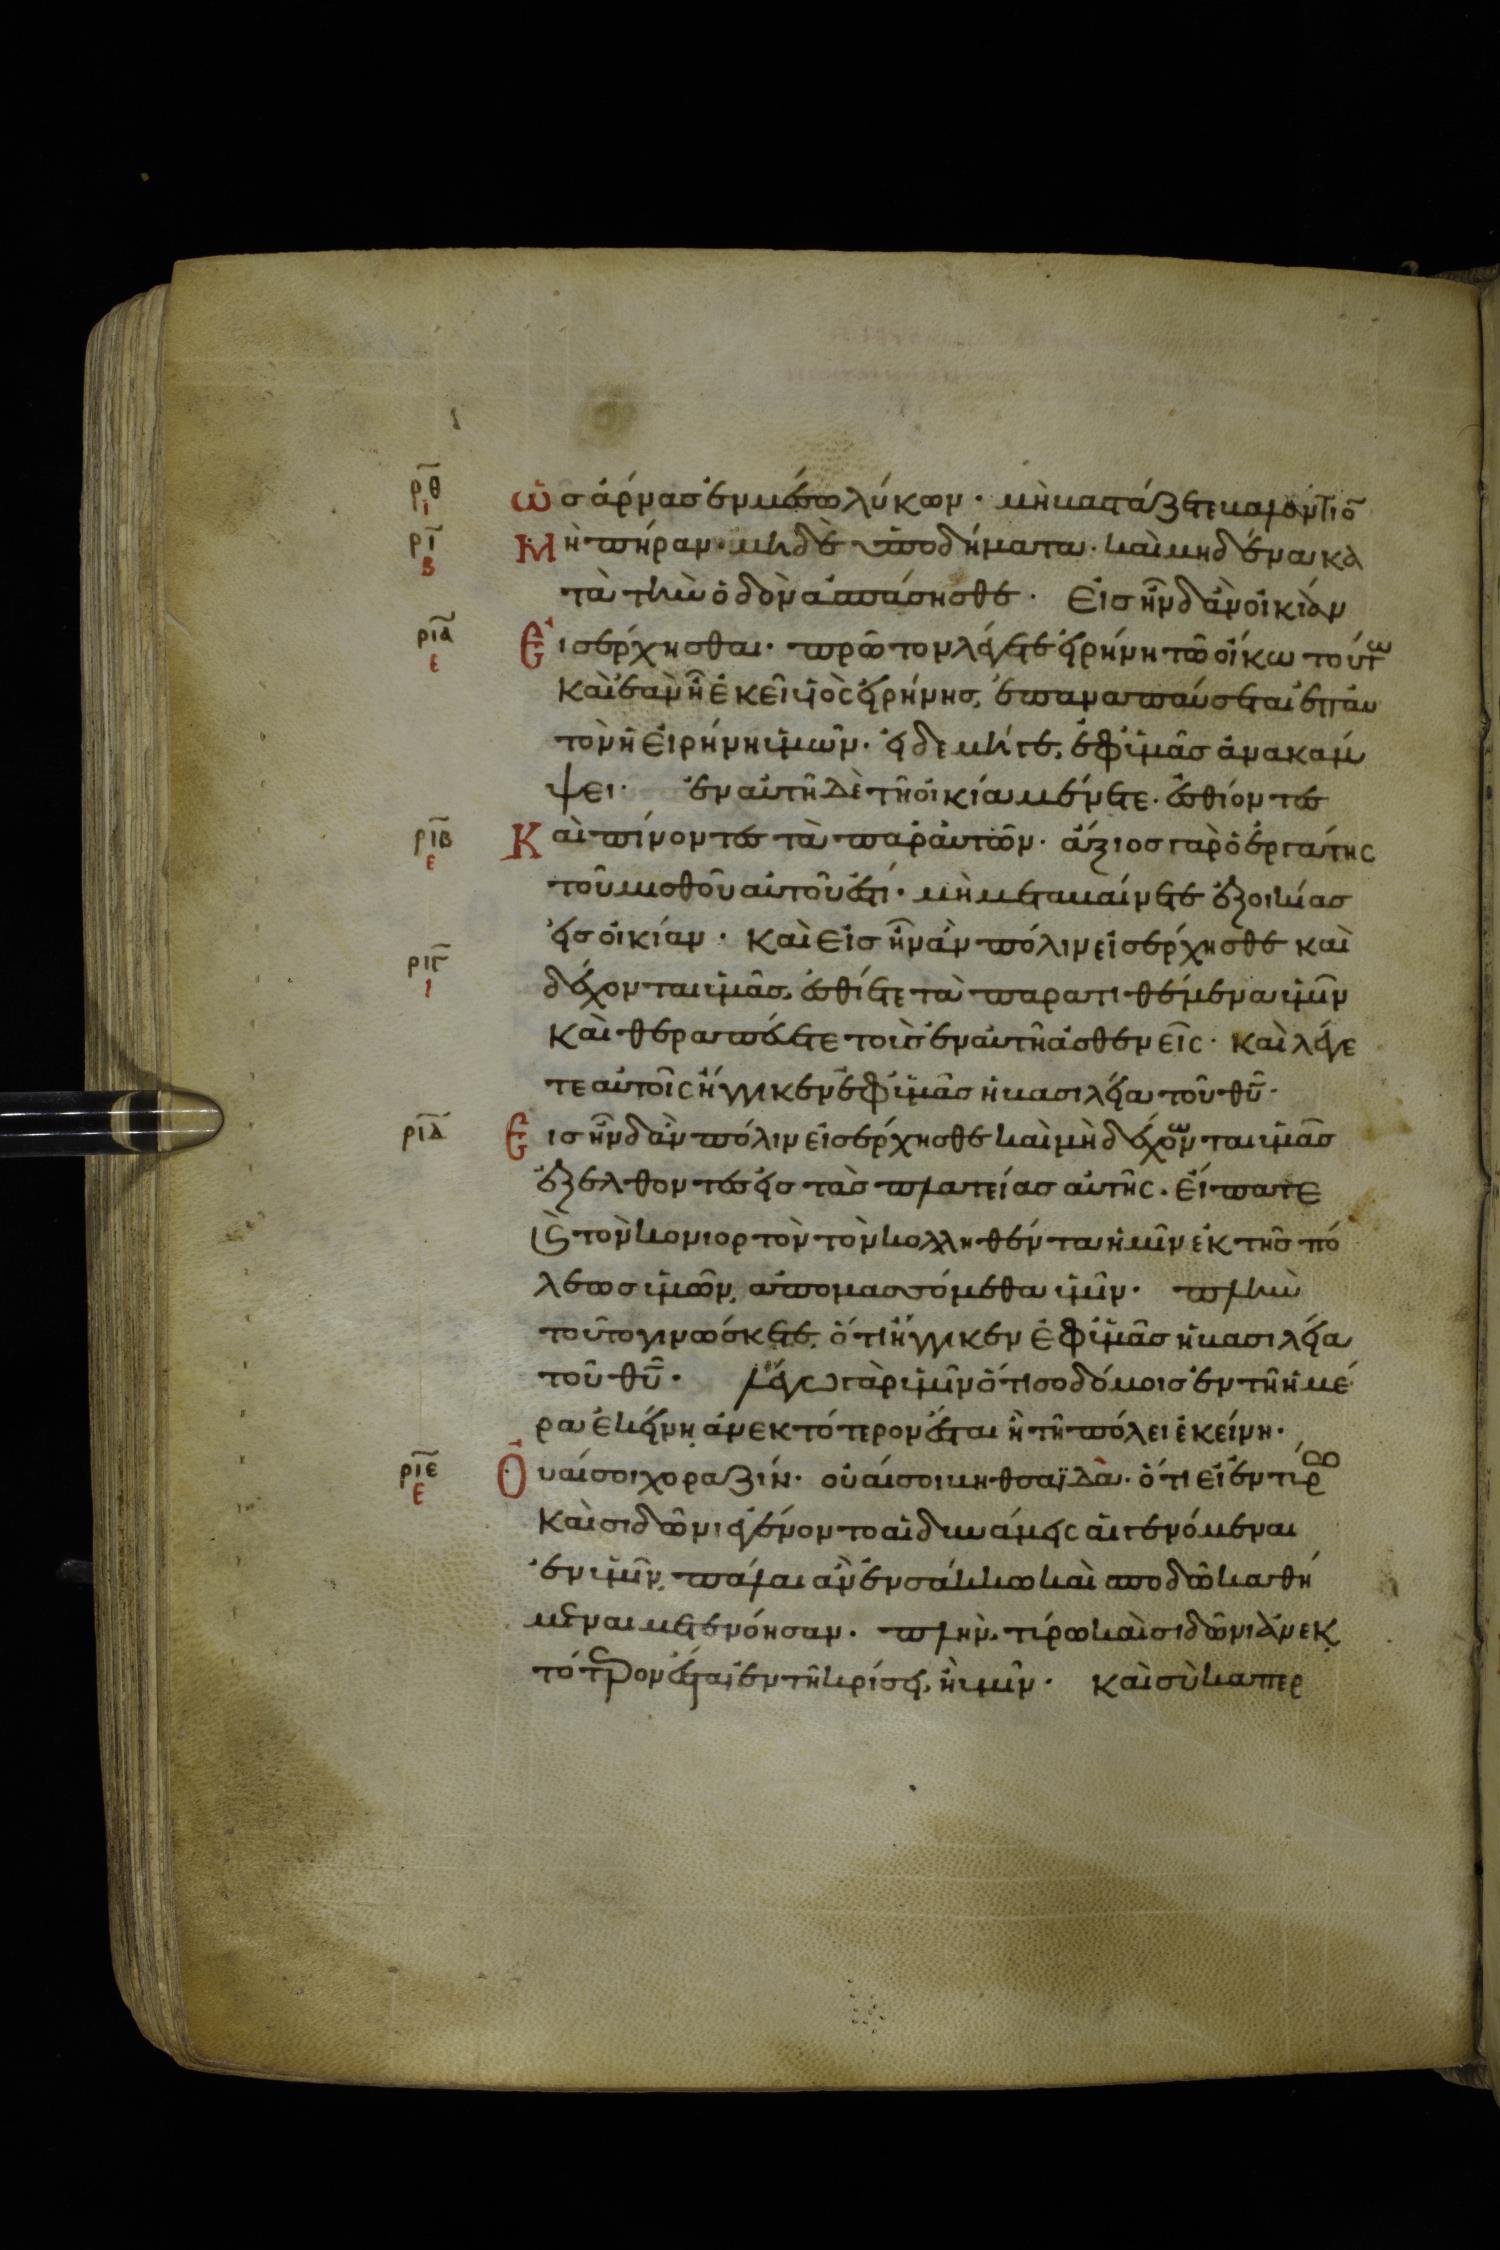 ρ̅θ̅ ι ὡσ ἄρνασ ἐν μέσω λύκων · μὴ βαστάζετε βαλάντιο̅
ρ̅ι̅ β Μὴ πήραν · μηδὲ ὑποδήματα · καὶ μηδένα κα
τὰ τὴν ὁδὸν ἀσπάσησθε · Εἰσ ἣν δ ἂν οἰκίαν
ρ̅ι̅α̅ ε Εἰσέρχησθαι · πρῶτον λέγετε εἰρήνη τῶ οἴκω τούτω
Καὶ ἐὰν ἦ ἐκεῖ υἱὸς εἰρήνησ, ἐπαναπαύσεται ἐπ αυ
τὸν ἡ εἰρήνη ὑμῶν · εἰ δε μήγε, ἐφ ὑμᾶσ ἀνακάμ
ψει · ἐν αὐτῆ δὲ τῆ οἰκία μένετε · ἐσθίοντεσ
ρ̅ι̅β̅ ε Καὶ πίνοντεσ τὰ παρ αὐτῶν · ἄξιοσ γὰρ ὁ ἐργάτης
τοῦ μισθοῦ αὐτοῦ ἐστί · μὴ μεταβαίνετε ἐξ οικίασ
εἰσ οἰκίαν · Καὶ εἰσ ἣν ἂν πόλιν εἰσέρχησθε καὶ
ρ̅ι̅γ̅ ι δέχονται ὑμᾶσ, ἐσθίετε τὰ παρατιθέμενα ὑμῖν
Καὶ θεραπεύετε τοὺσ ἐν αὐτῆ ἀσθενεῖς · Καὶ λέγε
τε αὐτοῖς ἤγγικεν ἐφ ὑμᾶσ ἡ βασιλεία τοῦ θ̅υ̅ ·
ρ̅ι̅δ̅ Εἰσ ἣν δ ἂν πόλιν εἰσέρχησθε καὶ μὴ δέχονται ὑμᾶσ
ἐξελθοντεσ εἰσ τὰσ πλατείασ αὐτῆς · εἴπατε
Καὶ τὸν κονιορτὸν τὸν κολληθέντα ἡμῖν ἐκ τῆσ πό
λεωσ ὑμῶν, ἀπομασσόμεθα ὑμῖν · πλὴν
τοῦτο γινώσκετε, ὅτι ἤγγικεν ἐφ ὑμᾶσ ἡ βασιλεία
τοῦ θ̅υ̅ · λέγω γὰρ ὑμῖν ὅτι σοδόμοισ ἐν τῆ ἡμέ
ρα ἐκείνη, ἀνεκτότερον ἔσται ἢ τῆ πόλει ἐκείνη ·
ρ̅ι̅ε̅ ε Ουαί σοι χοραζίν · οὐαί σοι βηθσαϊδὰ · ὅτι εἰ ἐν τύρω
Καὶ σιδῶνι ἐγένοντο αἱ δυνάμεις αἱ γενόμεναι
ἐν ὑμῖν, πάλαι ἂν ἐν σάκκω καὶ σποδῶ καθή
μεναι μετενόησαν · πλὴν, τύρω καὶ σιδῶνι ἀνεκ
τότερον ἔσται ἐν τῆ κρίσει, ἢ ὑμῖν · Καὶ σὺ καπερ